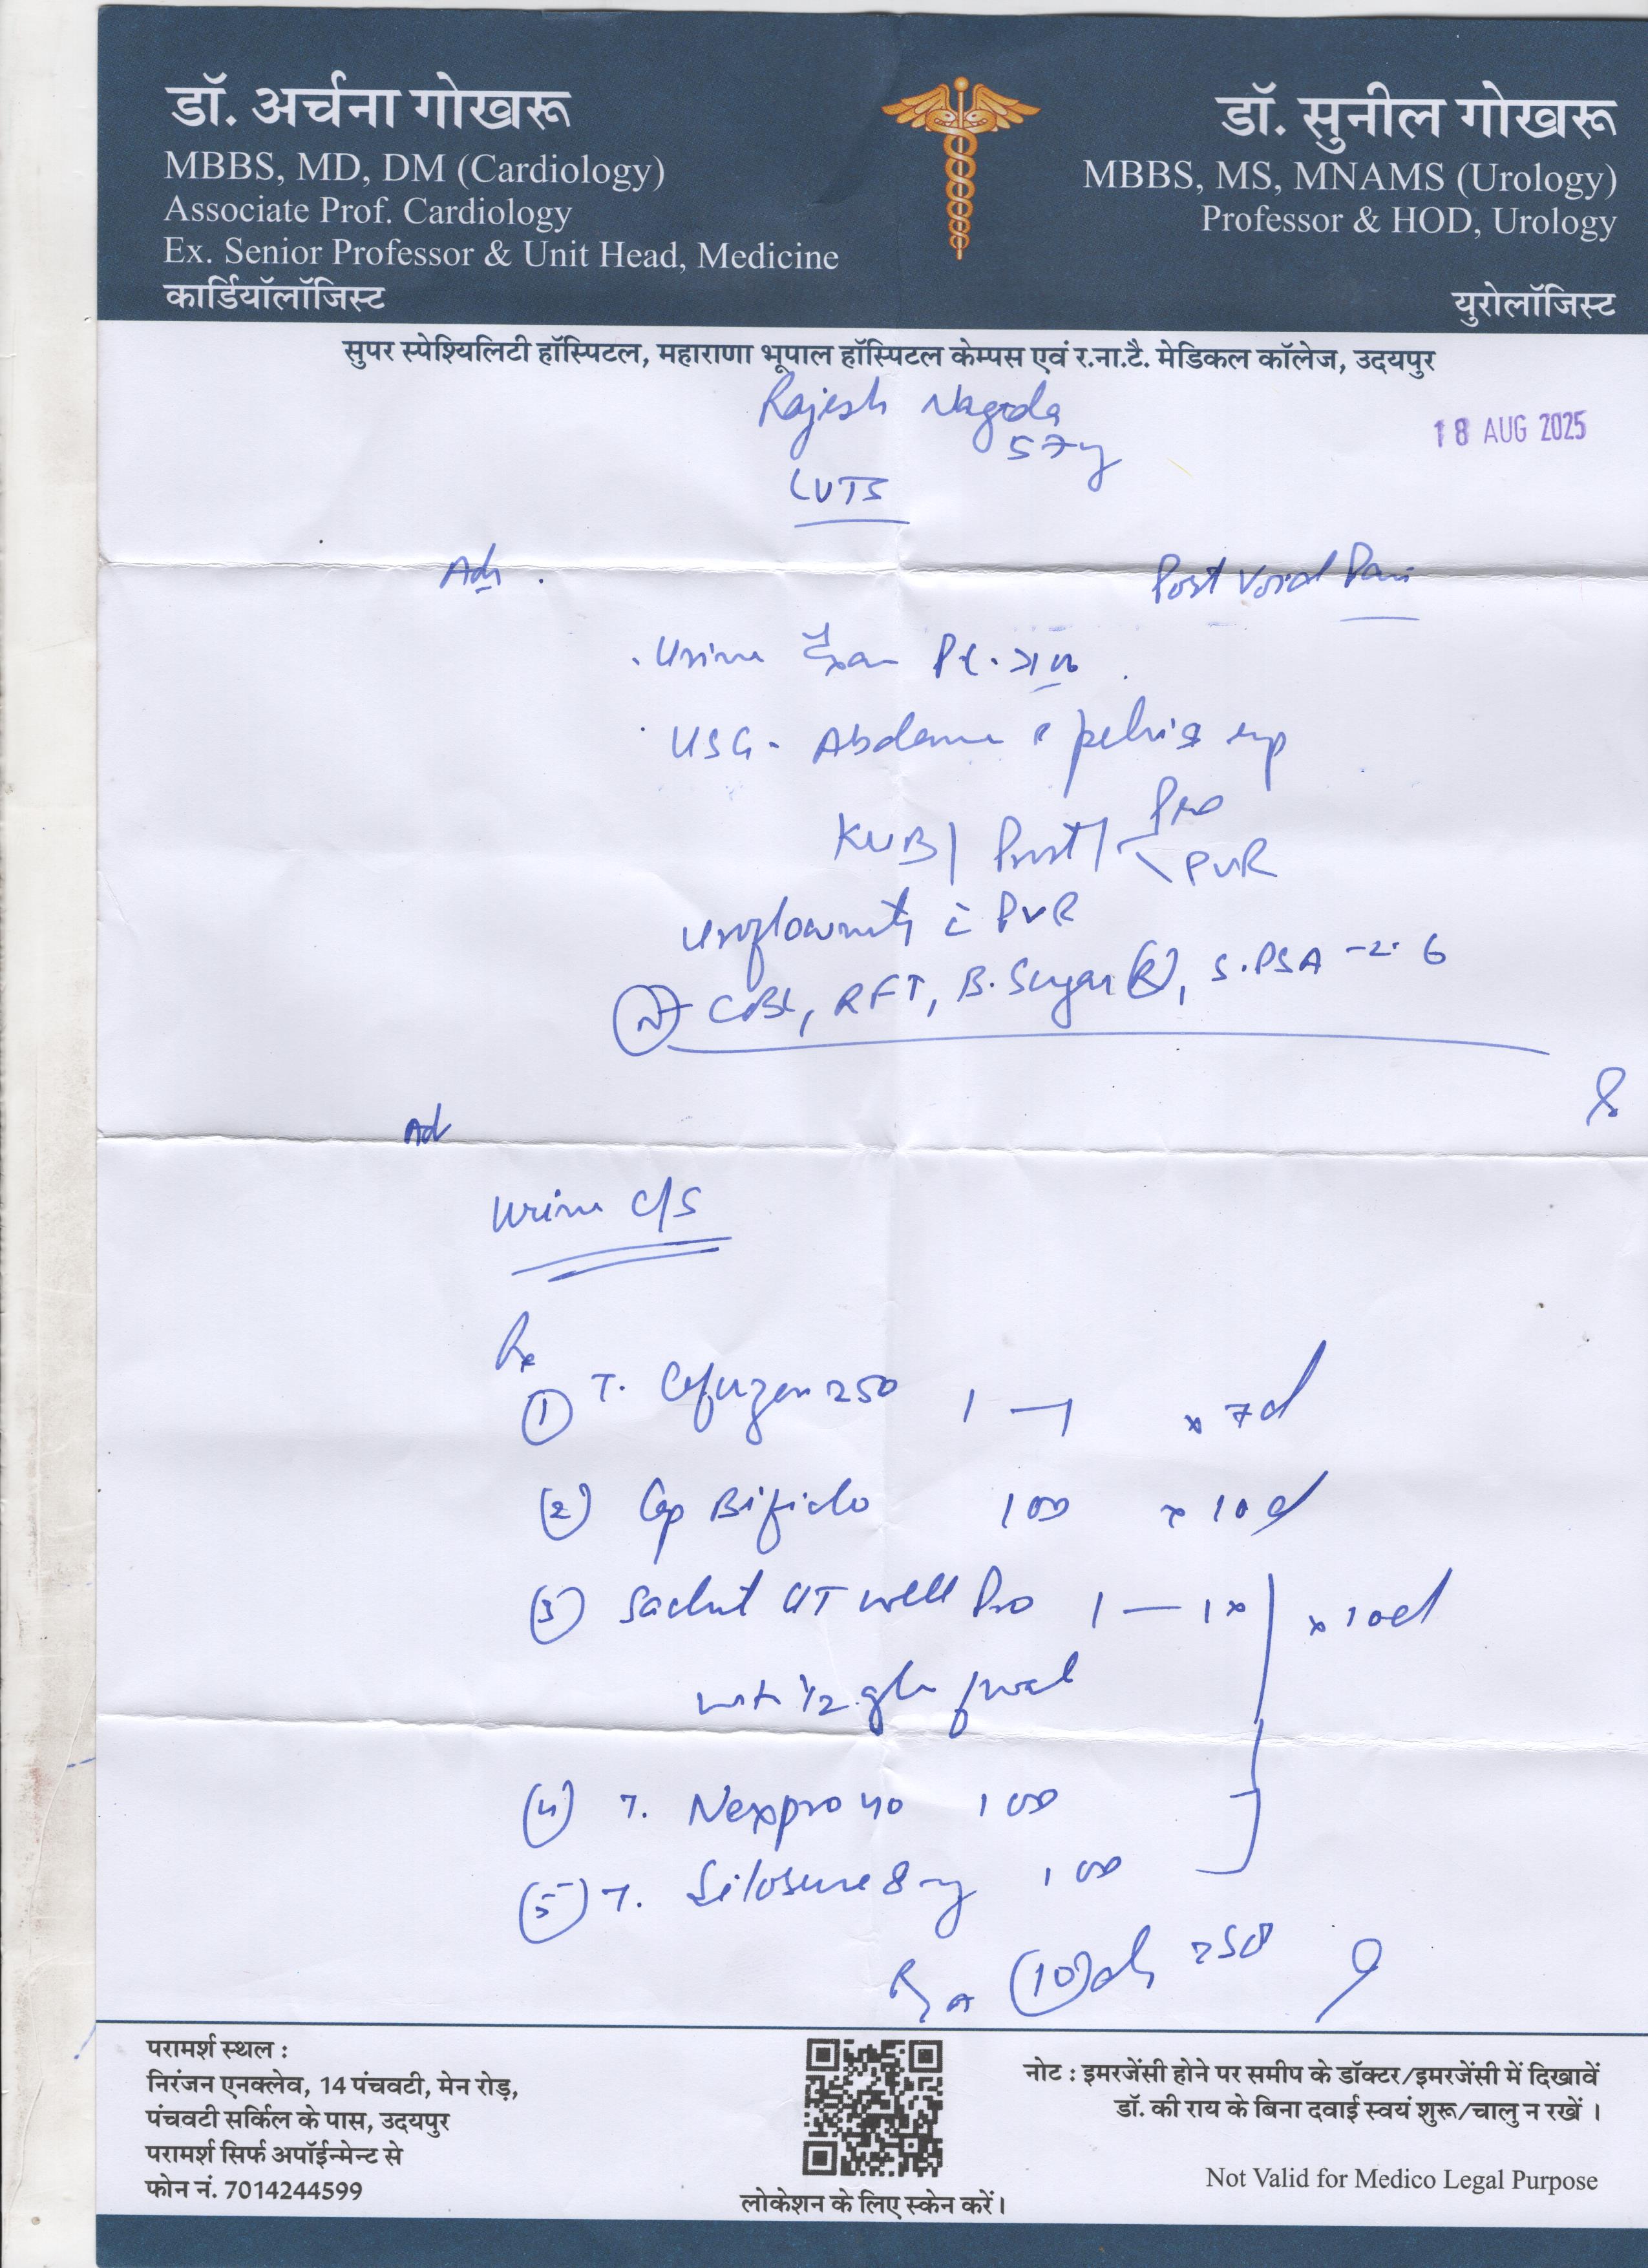 डॉ. अर्चना गोखरू
MBBS, MD, DM (Cardiology)
Associate Prof. Cardiology
Ex. Senior Professor & Unit Head, Medicine
कार्डियॉलॉजिस्ट
डॉ. सुनील गोखरू
MBBS, MS, MNAMS (Urology)
Professor & HOD, Urology
युरोलॉजिस्ट
सुपर स्पेश्यिलिटी हॉस्पिटल, महाराणा भूपाल हॉस्पिटल केम्पस एवं र.ना.टै. मेडिकल कॉलेज, उदयपुर
Rajesh Nagoda
57y
18 AUG 2025
LUTS
Adv.
Post Void Pain
. Urine Exam
. USG - Abdomen pelvis exp
KUB / Prost / Pre
PVR
Uroflowmetry c̄ PVR
(N) CBC, RFT, B. Sugar (R), S.PSA - 2.6
Adv
Urine C/S
Rx
(1) T. 250 1 — 1 x 7d
(2) Cap Bifido 100 x 10d
(3) Sachet UT well Pro 1 — 1 x x 10d
with 1/2 gls
(4) T. Nexpro 40 100
(5) T. Silosure 8mg 100
(10)
परामर्श स्थल :
निरंजन एनक्लेव, 14 पंचवटी, मेन रोड़,
पंचवटी सर्किल के पास, उदयपुर
परामर्श सिर्फ अपॉईन्मेन्ट से
फोन नं. 7014244599
लोकेशन के लिए स्केन करें।
नोट : इमरजेंसी होने पर समीप के डॉक्टर/इमरजेंसी में दिखावें
डॉ. की राय के बिना दवाई स्वयं शुरू/चालु न रखें ।
Not Valid for Medico Legal Purpose